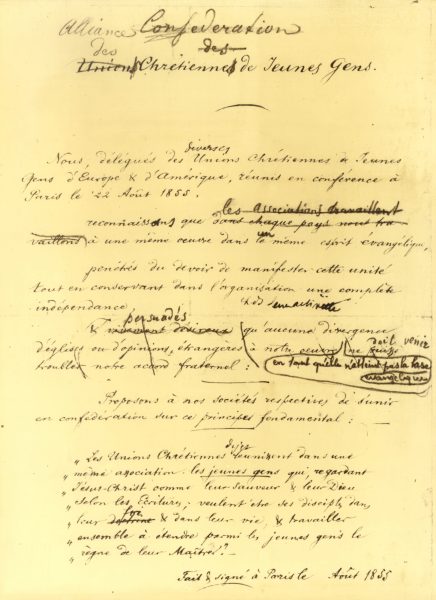 Alliance Confederation
des des
Unions Chrétiennes de Jeunes Gens.
diverses
Nous, délégués des Unions Chrétiennes de Jeunes
Gens d'Europe & d'Amérique, réunis en conférence à
Paris le 22 Août 1855.
les Associations travaillent
reconnaissons que dans chaque pays nous tra
vaillons à une même œuvre dans un même esprit evangélique,
pénétrés du devoir de manifester cette unité
tout en conservant dans l'organisation une complète
indépendance
persuadés
& vivement désireux qu'aucune divergence
d'églises ou d'opinions, étrangères à notre œuvre doit venir
troubler notre accord fraternel :
en tant qu'elle n'atteint pas la base
evangélique
Proposons à nos Sociétés respectives de s'unir
en confédération sur ce principe fondamental :
„ Les Unions Chrétiennes réunissent dans une
„ même association les jeunes gens qui regardant
„ Jésus-Christ comme leur Sauveur & leur Dieu
„ selon les Ecritures, veulent être ses disciples dans
„ leur foi & dans leur vie & travailler
„ ensemble à étendre parmi les jeunes gens le
„ règne de leur Maître. "
Fait & signé à Paris le Août 1855